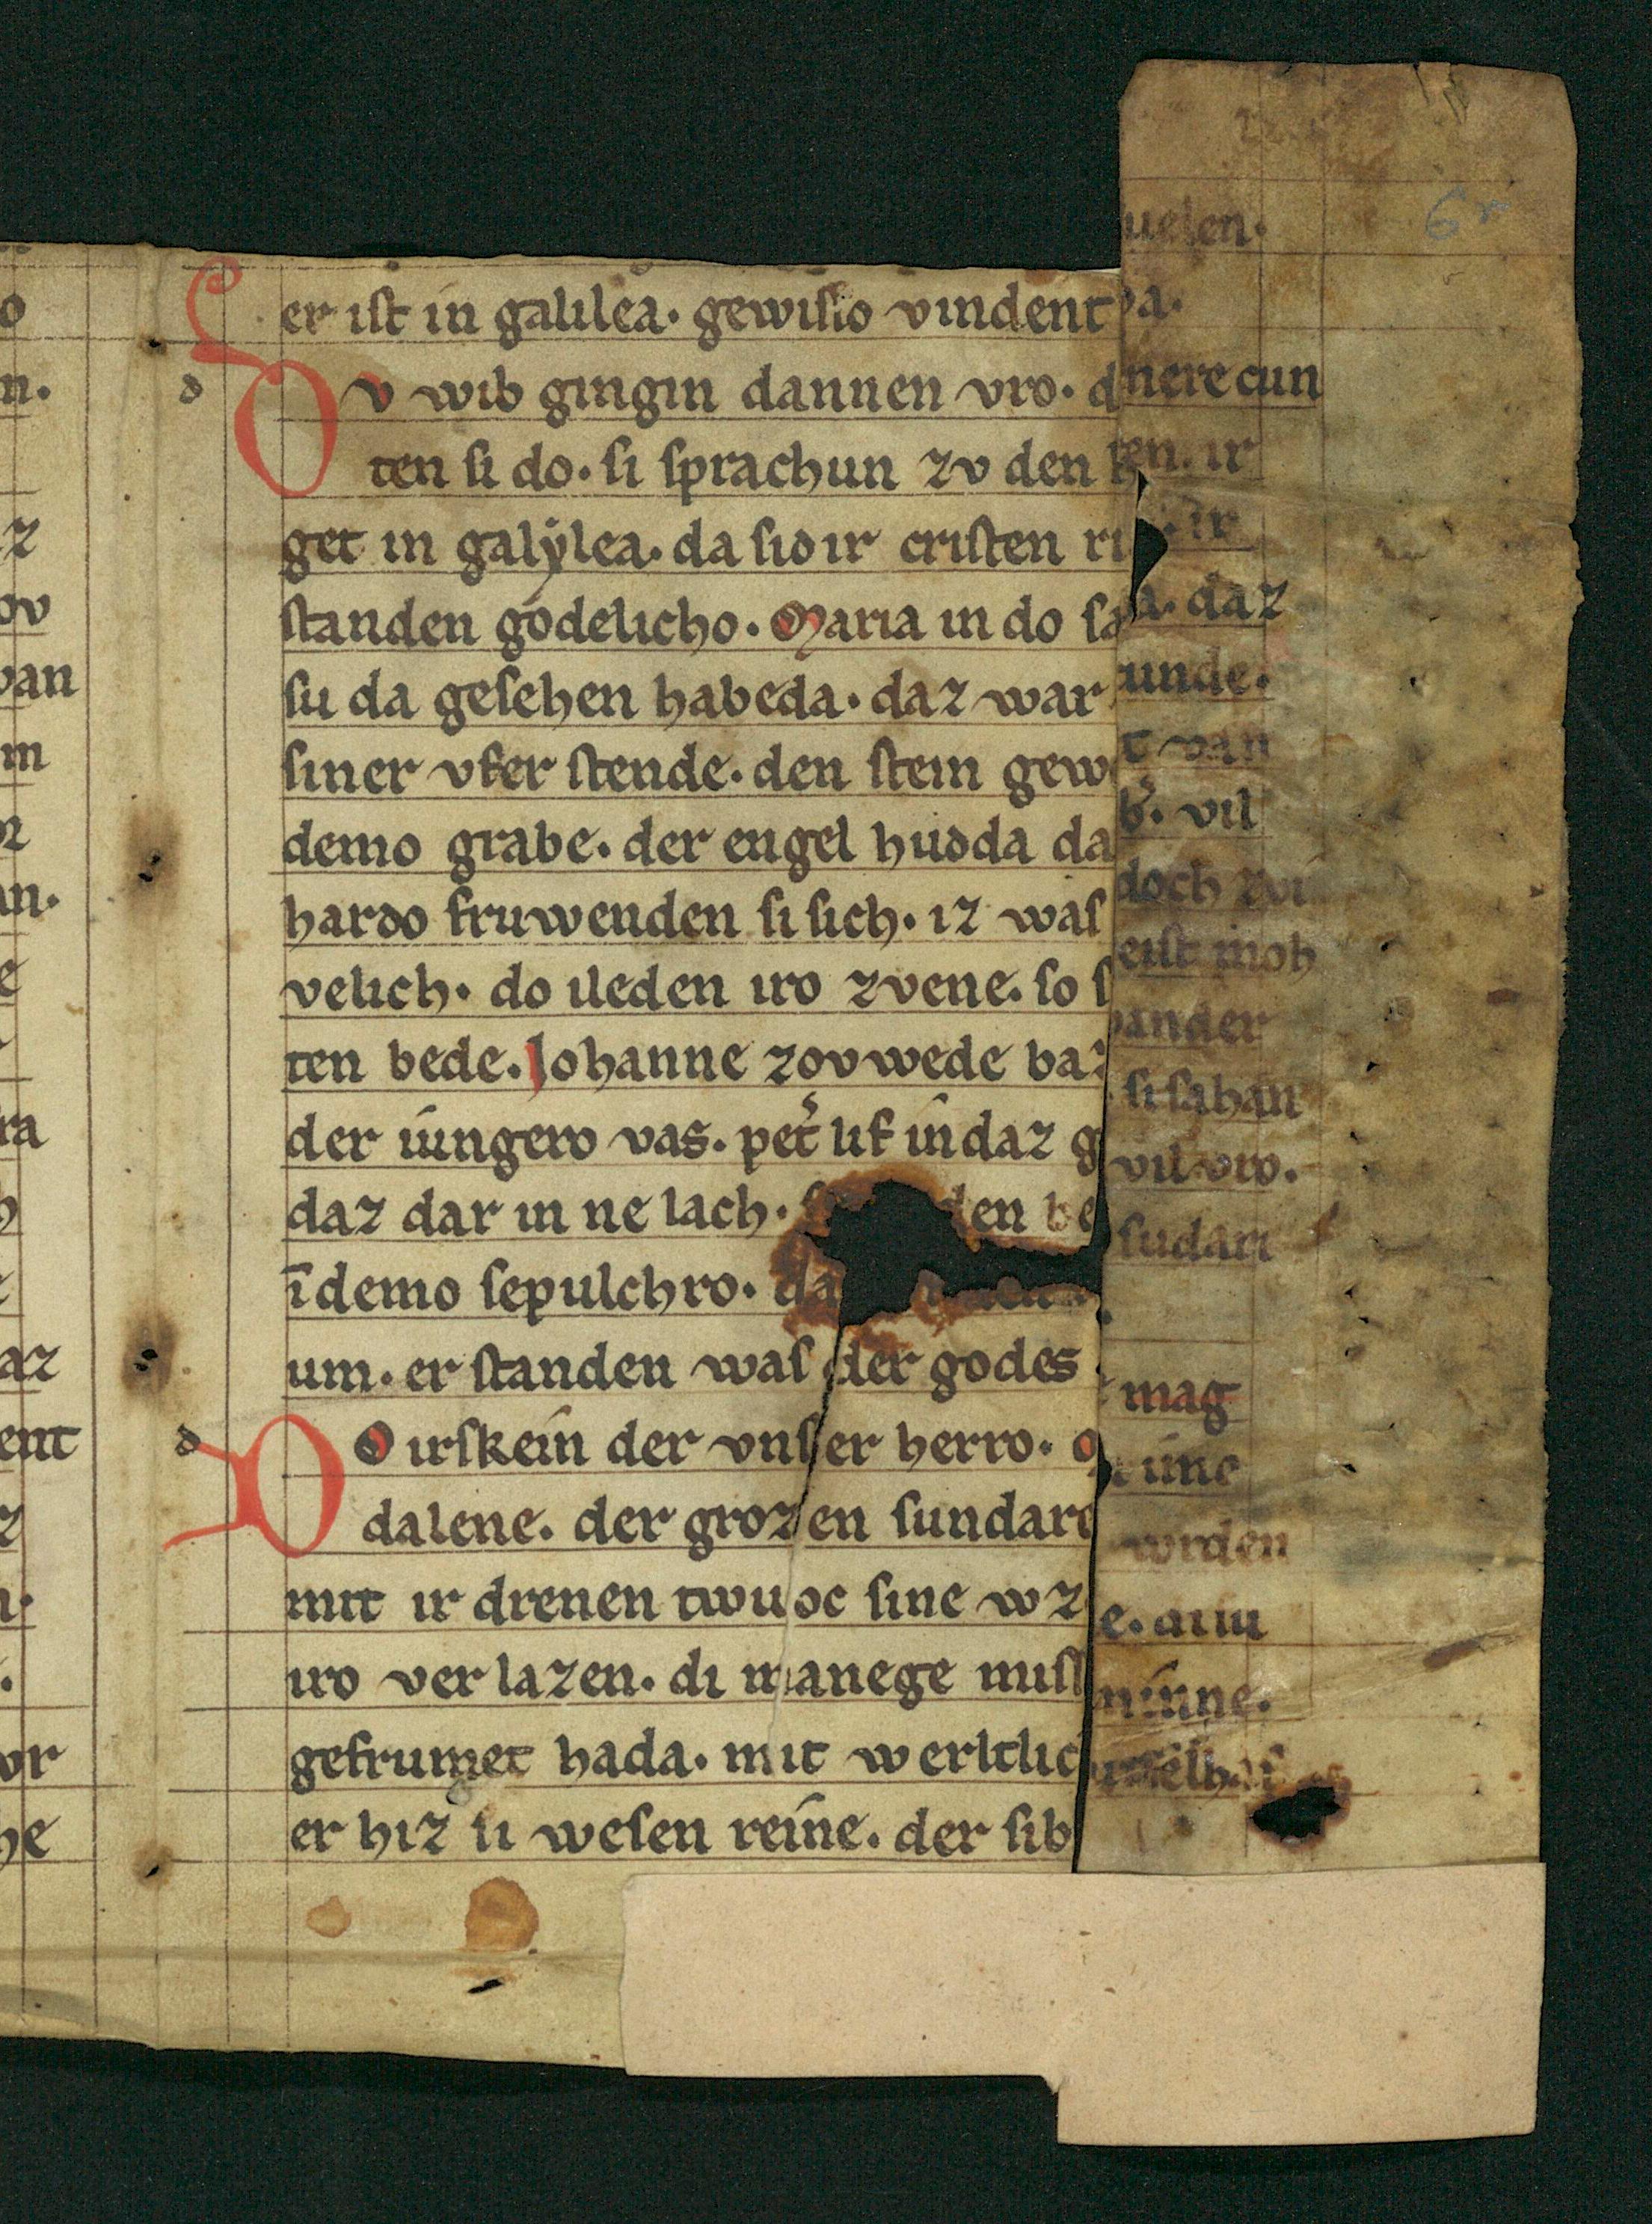 uelen.
er iſt in galilea. gewiſſo vindent   va.
Dv wib gingin dannen vro. d   nere cun
ten ſi do. ſi ſprachun zv den   ten. ir
get in galẏlea. da ſiď ir criſten   ir
ſtanden godelicho. Maria in do ſa   a. daz
ſu da geſehen habeda. daz war   unde.
ſiner vfer ſtende. den ſtein gew   t van
demo grabe. der engel huďda da   vil
harďo fruwenden ſi ſich. iz waſ   doch zvi
velich. do ileden iro zvene. ſo ſ   eiſt moh
ten bede. Johanne zovwede baz   ander
der iungero vas. pet͛ lif in daz g   ſi ſahan
daz dar in ne lach.   den be   vil vro.
ī demo ſepulchro. da   ſudari
um. er ſtanden waſ der godes
Do irſkein der vnſer herro.   mag
dalene. der grozen ſundare   ine
mit ir drenen twuoc ſine wz   wrden
iro ver lazen. di manege miſſ   e. aiu
gefrumet hada. mit werltlic   minne.
er hiz ſi weſen reine. der ſib